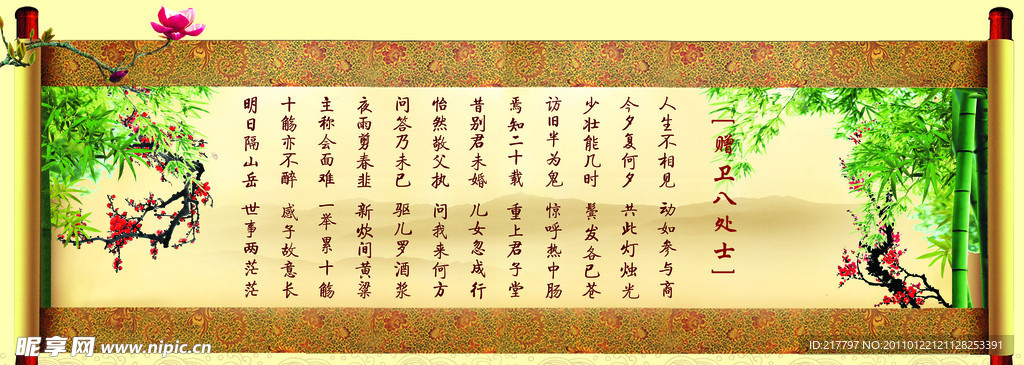 [赠卫八处士]
人生不相见 动如参与商
今夕复何夕 共此灯烛光
少壮能几时 鬓发各已苍
访旧半为鬼 惊呼热中肠
焉知二十载 重上君子堂
昔别君未婚 儿女忽成行
怡然敬父执 问我来何方
问答乃未已 驱儿罗酒浆
夜雨剪春韭 新炊间黄粱
主称会面难 一举累十觞
十觞亦不醉 感子故意长
明日隔山岳 世事两茫茫
昵享网 www.nipic.cn
ID:217797 NO:20110122121128253391